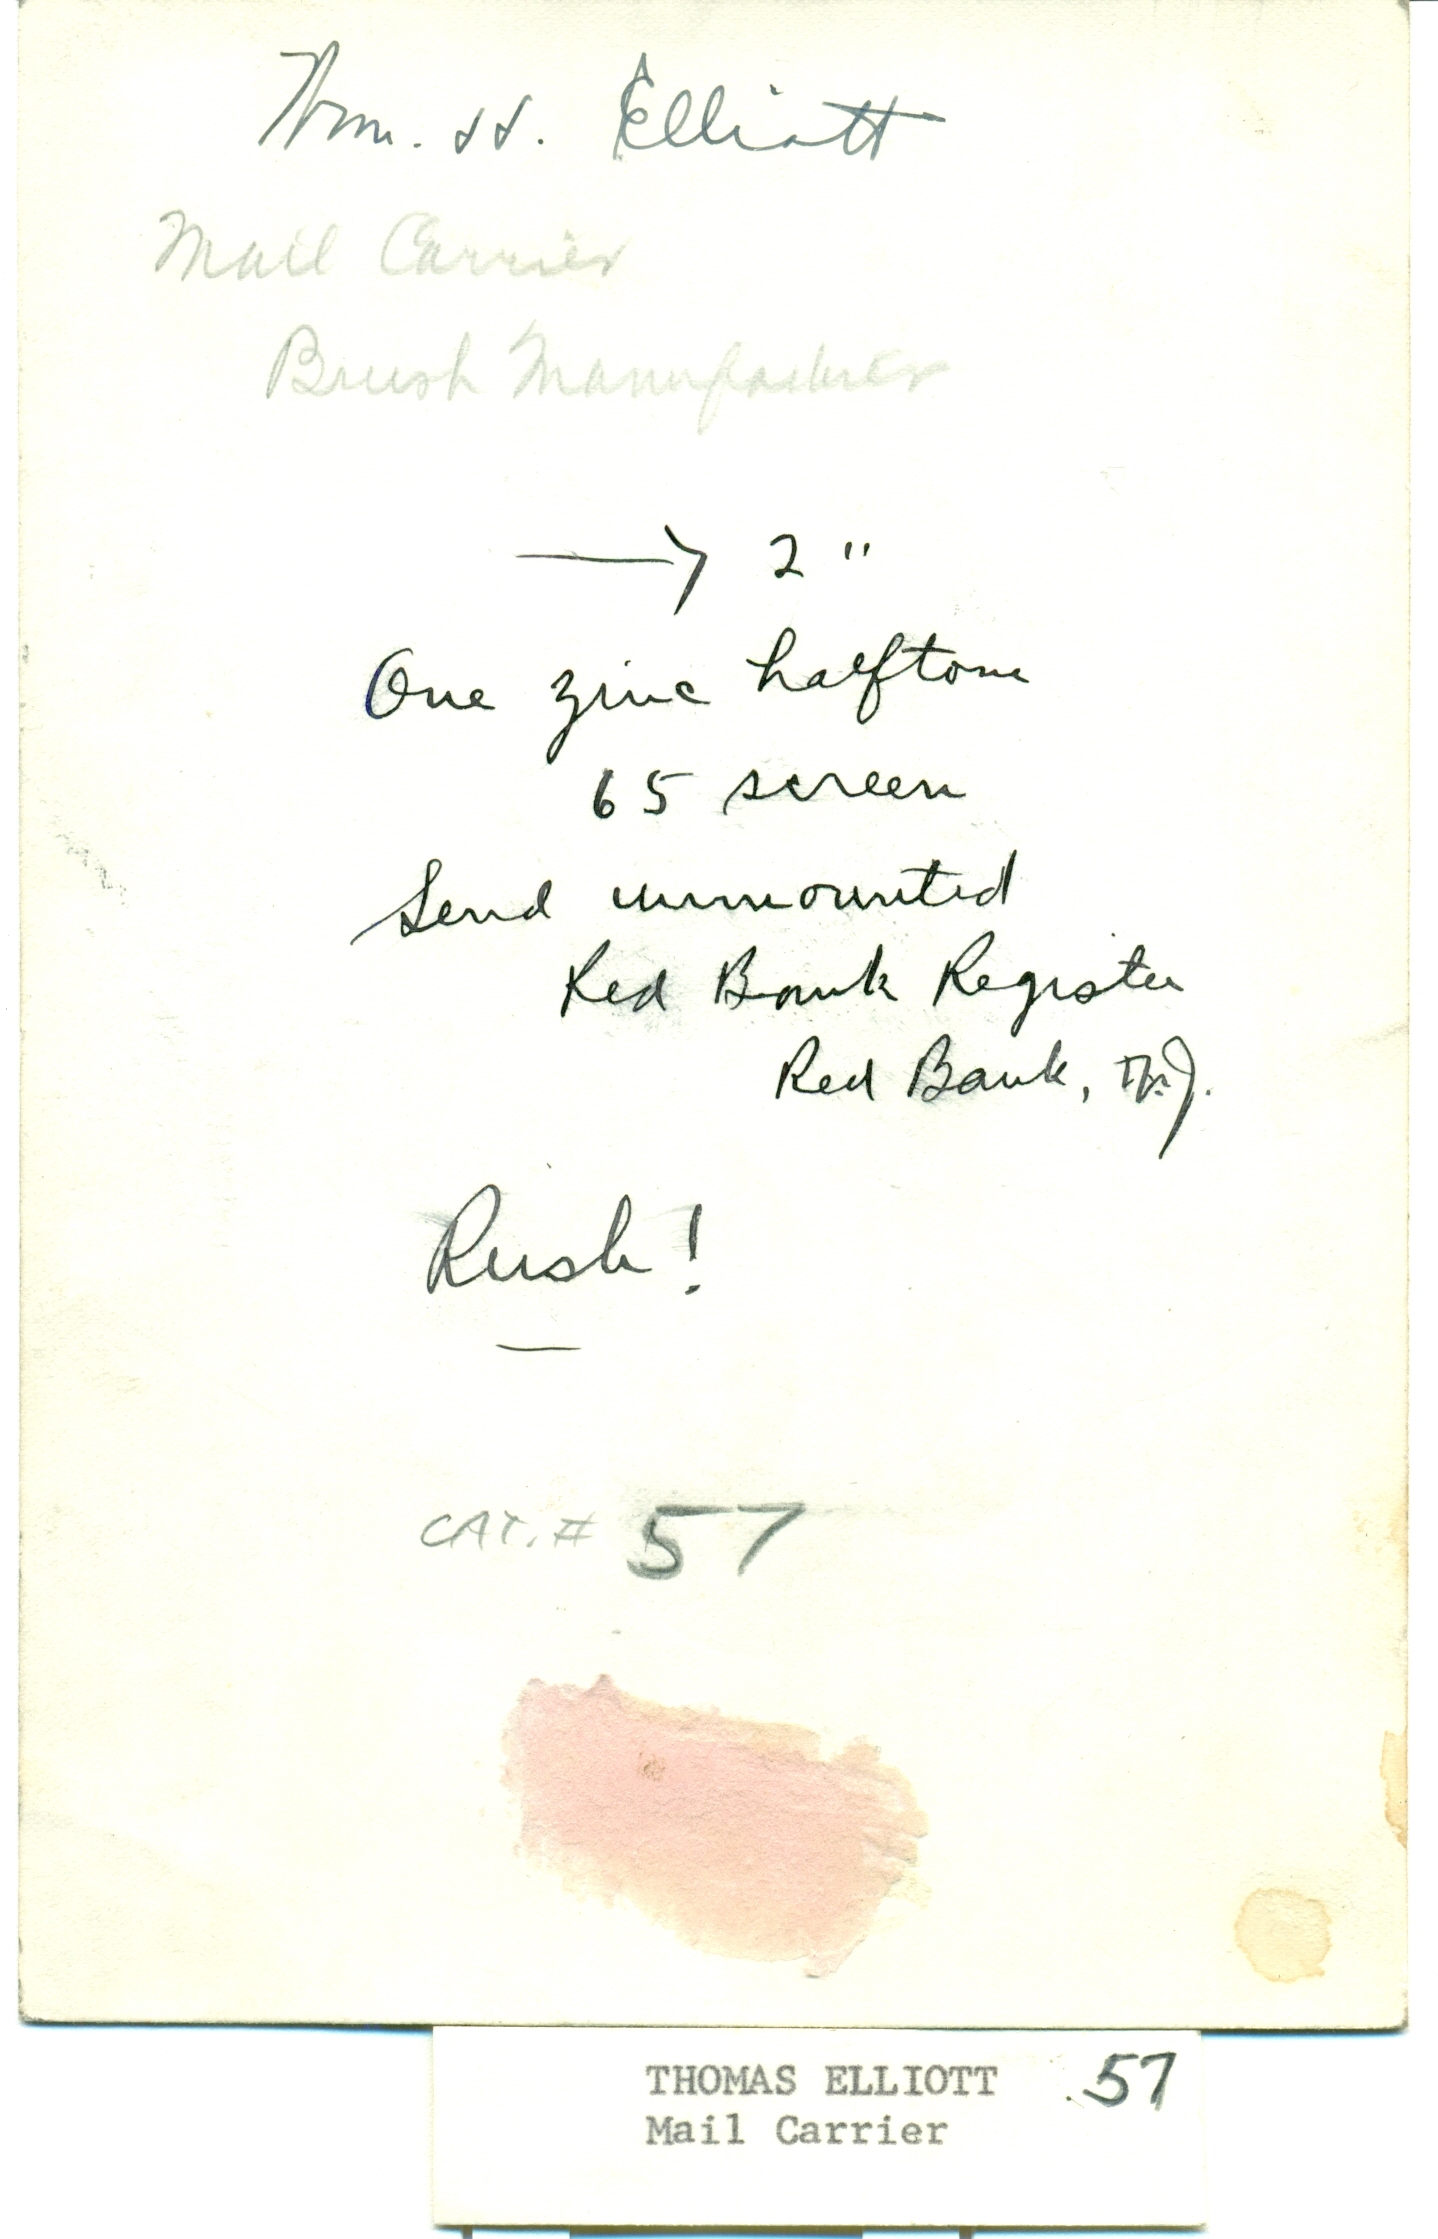 Wm. H. Elliott
Mail Carrier
Brush Manufacturer
→ 2"
One zinc halftone
65 screen
Send unmounted
Red Bank Register
Red Bank, N.J.
Rush!
CAT. # 57
THOMAS ELLIOTT 57
Mail Carrier